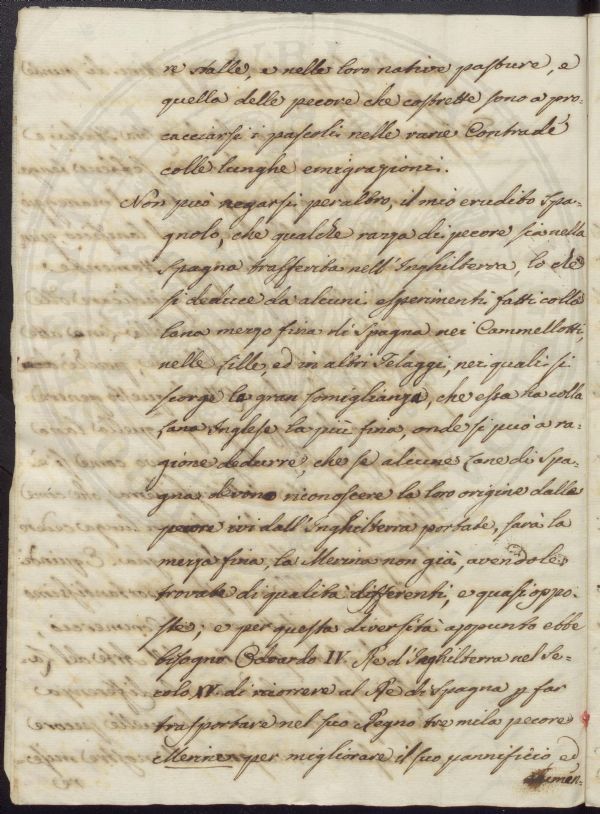 re stalle, e nelle loro native pasture, e
quella delle pecore che costrette sono a pro-
cacciarsi i pascoli nelle varie Contrade
colle lunghe emigrazioni.
Non può negarsi peraltro, il mio erudito Spa-
gnolo, che qualche razza di pecore sia nella
Spagna trasferita nell'Inghilterra, lo che
si deduce da alcuni esperimenti fatti colla
lana mezzo fina di Spagna nei Cammellotti,
nelle Lille, ed in altri Telaggi, nei quali si
scorge la gran somiglianza, che essa ha colla
Lana Inglese la più fina, onde si può a ra-
gione dedurre, che se alcune Lane di Spa-
gna devono riconoscere la loro origine dalle
pecore ivi dall'Inghilterra portate, sarà la
mezza fina, la Merina non già, avendole
trovate di qualità differenti, e quasi oppo-
ste; e per questa diversità appunto ebbe
bisogno Edoardo IV. Re d'Inghilterra nel Se-
colo XV. di ricorrere al Re di Spagna p far
trasportare nel suo Regno tre mila pecore
Merine per migliorare il suo pannificio ed
aumen-